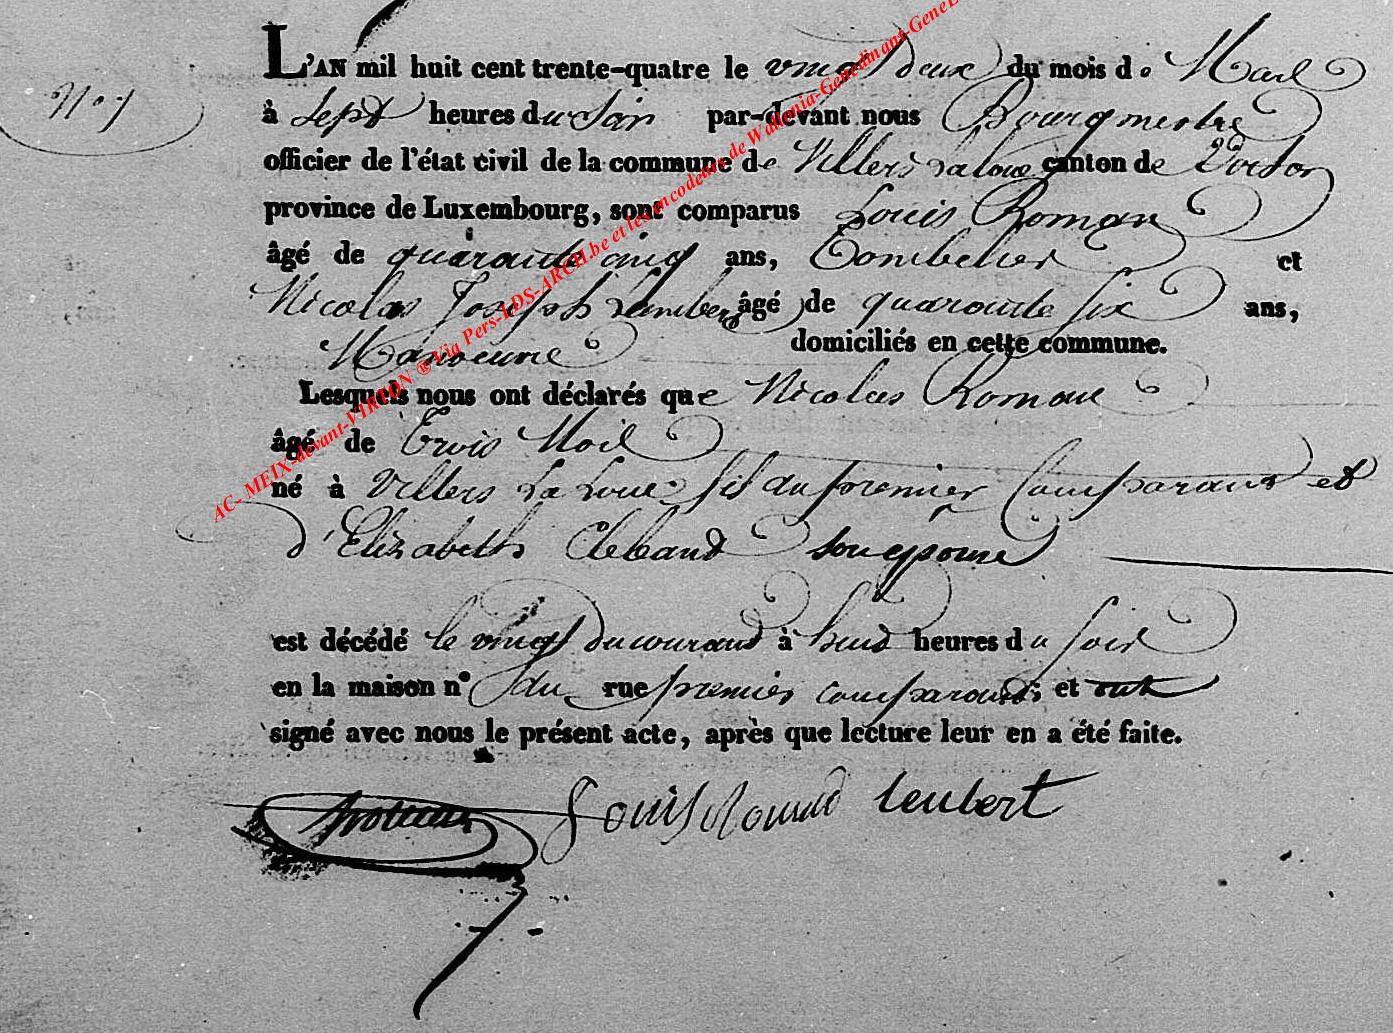 N.o 7
L'AN mil huit cent trente-quatre le vingt deux du mois de Mars
à Sept heures du Soir par-devant nous Bourgmestre
officier de l'état civil de la commune de Villers La loue canton de Virton
province de Luxembourg, sont comparus Louis Roman
âgé de quarante cinq ans, Tombelier et
Nicolas Joseph Lambert âgé de quarante six ans,
Manoeuvre domiciliés en cette commune.
Lesquels nous ont déclarés que Nicolas Roman
âgé de Trois Mois
né à Villers La Loue fils du premier Comparant et
d'Elizabeth Clebant son epouse
est décédé le vingt du courant à huit heures du Soir
en la maison n° du rue premier comparant; et ont
signé avec nous le présent acte, après que lecture leur en a été faite.
Louis Roman Lambert
AC- MEIX-devant-VIRTON ® Via Pers-LDS-ARCH.be et les encodeurs de Wallonia-Genedinant-Gene